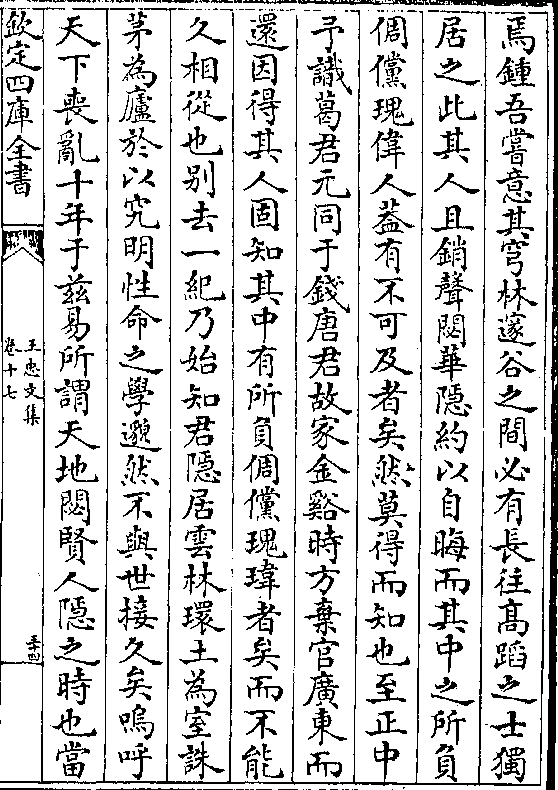 焉鍾吾嘗意其穹林邃谷之間必有長往髙蹈之士獨
居之此其人且銷聲閟華隱約以自晦而其中之所負
倜儻瑰偉人葢有不可及者矣然莫得而知也至正中
予識葛君元同于錢唐君故家金谿時方棄官廣東而
還因得其人固知其中有所負倜儻瑰瑋者矣而不能
久相從也别去一紀乃始知君隱居雲林環土為室誅
茅為廬於以究明性命之學邈然不與世接久矣嗚呼
天下喪亂十年于兹易所謂天地閟賢人隠之時也當
欽定四庫全書
王忠文集
卷十七
三十四